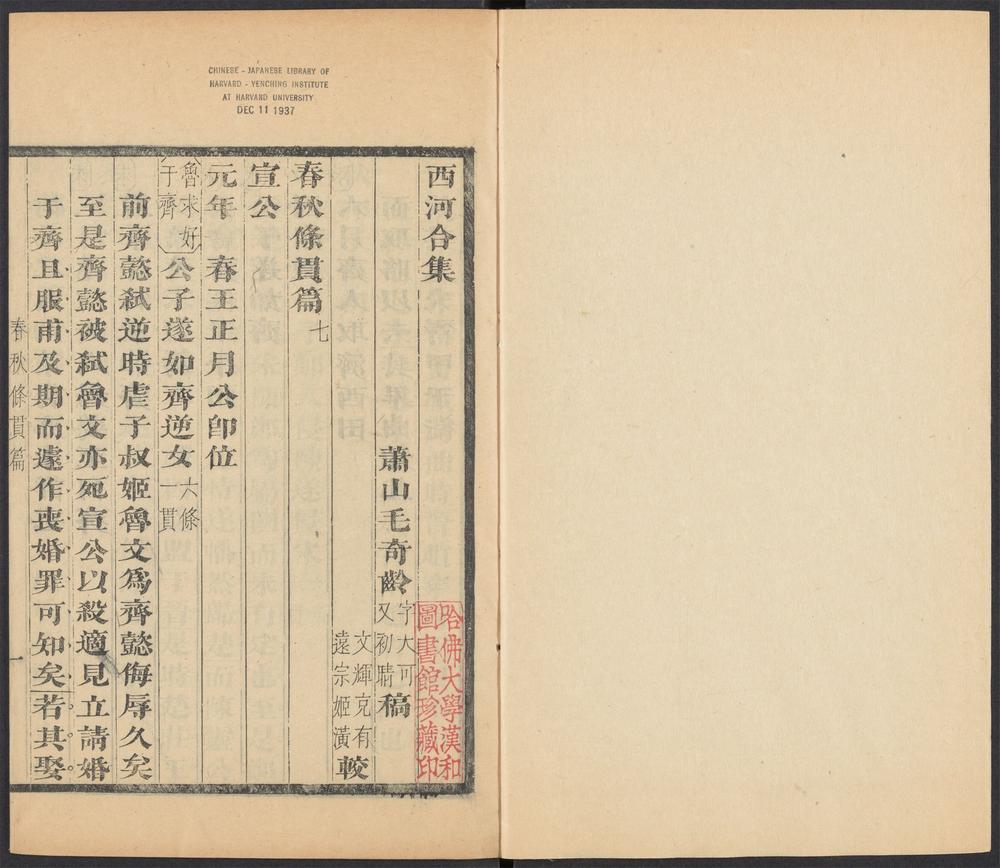 CHINESE - JAPANESE LIBRARY OF
HARVARD - YENCHING INSTITUTE
AT HARVARD UNIVERSITY
DEC 11 1937
西河合集
哈佛大學漢和
圖書館珍藏印
蕭山毛奇齡字大可又初晴稿
文輝克有
遠宗姬潢較
春秋條貫篇七
宣公
元年 春王正月公卽位
魯求好于齊公子遂如齊逆女六條一貫
前齊懿弑逆時虐子叔姬魯文爲齊懿侮辱久矣
至是齊懿被弑魯文亦死宣公以殺適見立請婚
于齊且服甫及期而遽作喪婚罪可知矣若其娶
春秋條貫篇
一